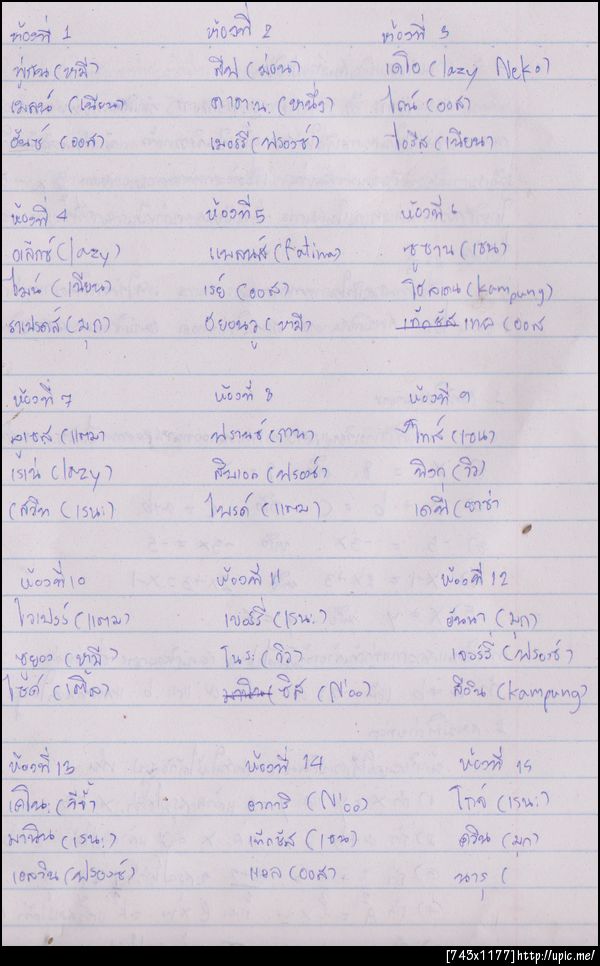 ห้องที่ 1 ห้องที่ 2 ห้องที่ 3
(ทามี) ลีฟ (ม่อน) เดโอ (lazy Neko)
เมสน์ (เนียน) (หานึ่ง) ไดน์ (ออส)
ฮันซ์ (ออส) เมอร์รี่ (ฟรองซ์) ไอริส (เนียน)
ห้องที่ 4 ห้องที่ 5 ห้องที่ 6
อเล็กซ์ (lazy) แพลนส์ (Fatima) ซูซาน (เซน)
ไมน์ (เนียน) เรย์ (ออส) โฮลเดน (kampung)
(มุก) ฮยอนวู (ทามี) เท็กซัส เทล (ออส
ห้องที่ 7 ห้องที่ 8 ห้องที่ 9
ลูเซส (แตม) ฟรานซ์ (กาน) ไทส์ (เซน)
เรเน่ (lazy) สิบเอก (ฟรองซ์) พิงกุ (วิว)
(เรนะ) ไพรด์ (แตม) เดฟี่ (ซาซ่า
ห้องที่ 10 ห้องที่ 11 ห้องที่ 12
ไวเปอร์ (แตม) เชอร์รี่ (เรนะ) อันนา (มุก)
ซูยอง (ทามี) โนระ (วิว) เจอร์รี่ (ฟรองซ์)
ไซด์ (เติ้ล) มานิน ซิส (N'oo) ลีอิน (kampung)
ห้องที่ 13 ห้องที่ 14 ห้องที่ 15
เคโนะ (ลีจ้ำ) อาการิ (N'oo) โกล์ (เรนะ)
มานิน (เรนะ) เท็กซัส (เซน) ควิน (มุก)
เอลวิน (ฟรองซ์) แอล (ออส) นารุ (
[743x1177]http://upic.me/